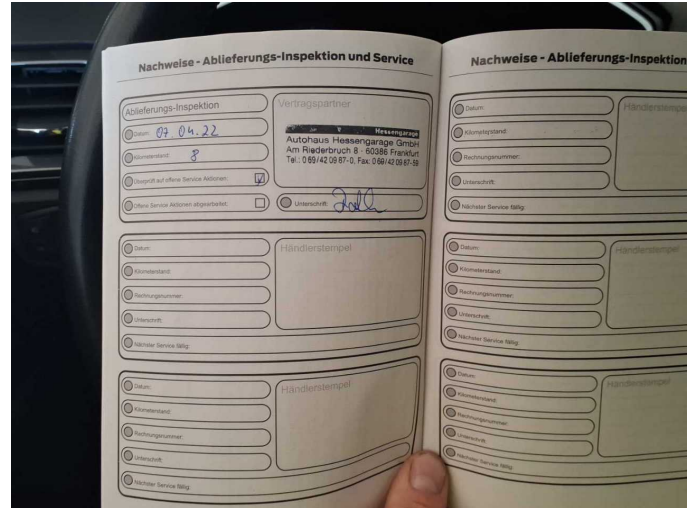 Nachweise - Ablieferungs-Inspektion und Service
Ablieferungs-Inspektion
Datum: 07.04.22
Kilometerstand: 8
Überprüft auf offene Service Aktionen:
Offene Service Aktionen abgearbeitet:
Vertragspartner
Hessengarage
Autohaus Hessengarage GmbH
Am Riederbruch 8 - 60386 Frankfurt
Tel.: 069/42 09 87-0, Fax: 069/42 09 87-59
Unterschrift:
Datum:
Kilometerstand:
Rechnungsnummer:
Unterschrift:
Nächster Service fällig:
Händlerstempel
Datum:
Kilometerstand:
Rechnungsnummer:
Unterschrift:
Nächster Service fällig:
Händlerstempel
Nachweise - Ablieferungs-Inspektion
Datum:
Kilometerstand:
Rechnungsnummer:
Unterschrift:
Nächster Service fällig:
Händlerstempel
Datum:
Kilometerstand:
Rechnungsnummer:
Unterschrift:
Nächster Service fällig:
Händlerstempel
Datum:
Kilometerstand:
Rechnungsnummer:
Unterschrift:
Nächster Service fällig:
Händlerstempel